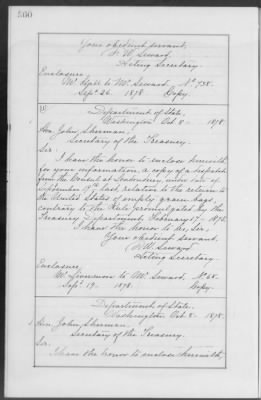 560
Your obedient servant,
F. W. Seward,
Acting Secretary.
Enclosure,
Mr. to Mr. Seward, No 738.
Sept. 26. 1878. Copy.
Department of State,
Washington Oct. 8 - 1878.
Hon. John Sherman,
Secretary of the Treasury.
Sir:
I have the honor to enclose herewith
for your information, a copy of a despatch
from the Consul at under date of
September 19th last, relation to the return to
the United States of empty grain bags
contrary to the Rule promulgated by the
Treasury Department, February 1st, 1878.
I have the honor to be, Sir,
Your obedient servant,
F. W. Seward
Acting Secretary.
Enclosure,
Mr. Livermore to Mr. Seward, No 68.
Sept. 19 - 1878. Copy.
Department of State,
Washington Oct. 8 - 1878.
Hon. John Sherman,
Secretary of the Treasury.
Sir:
I have the honor to enclose herewith,